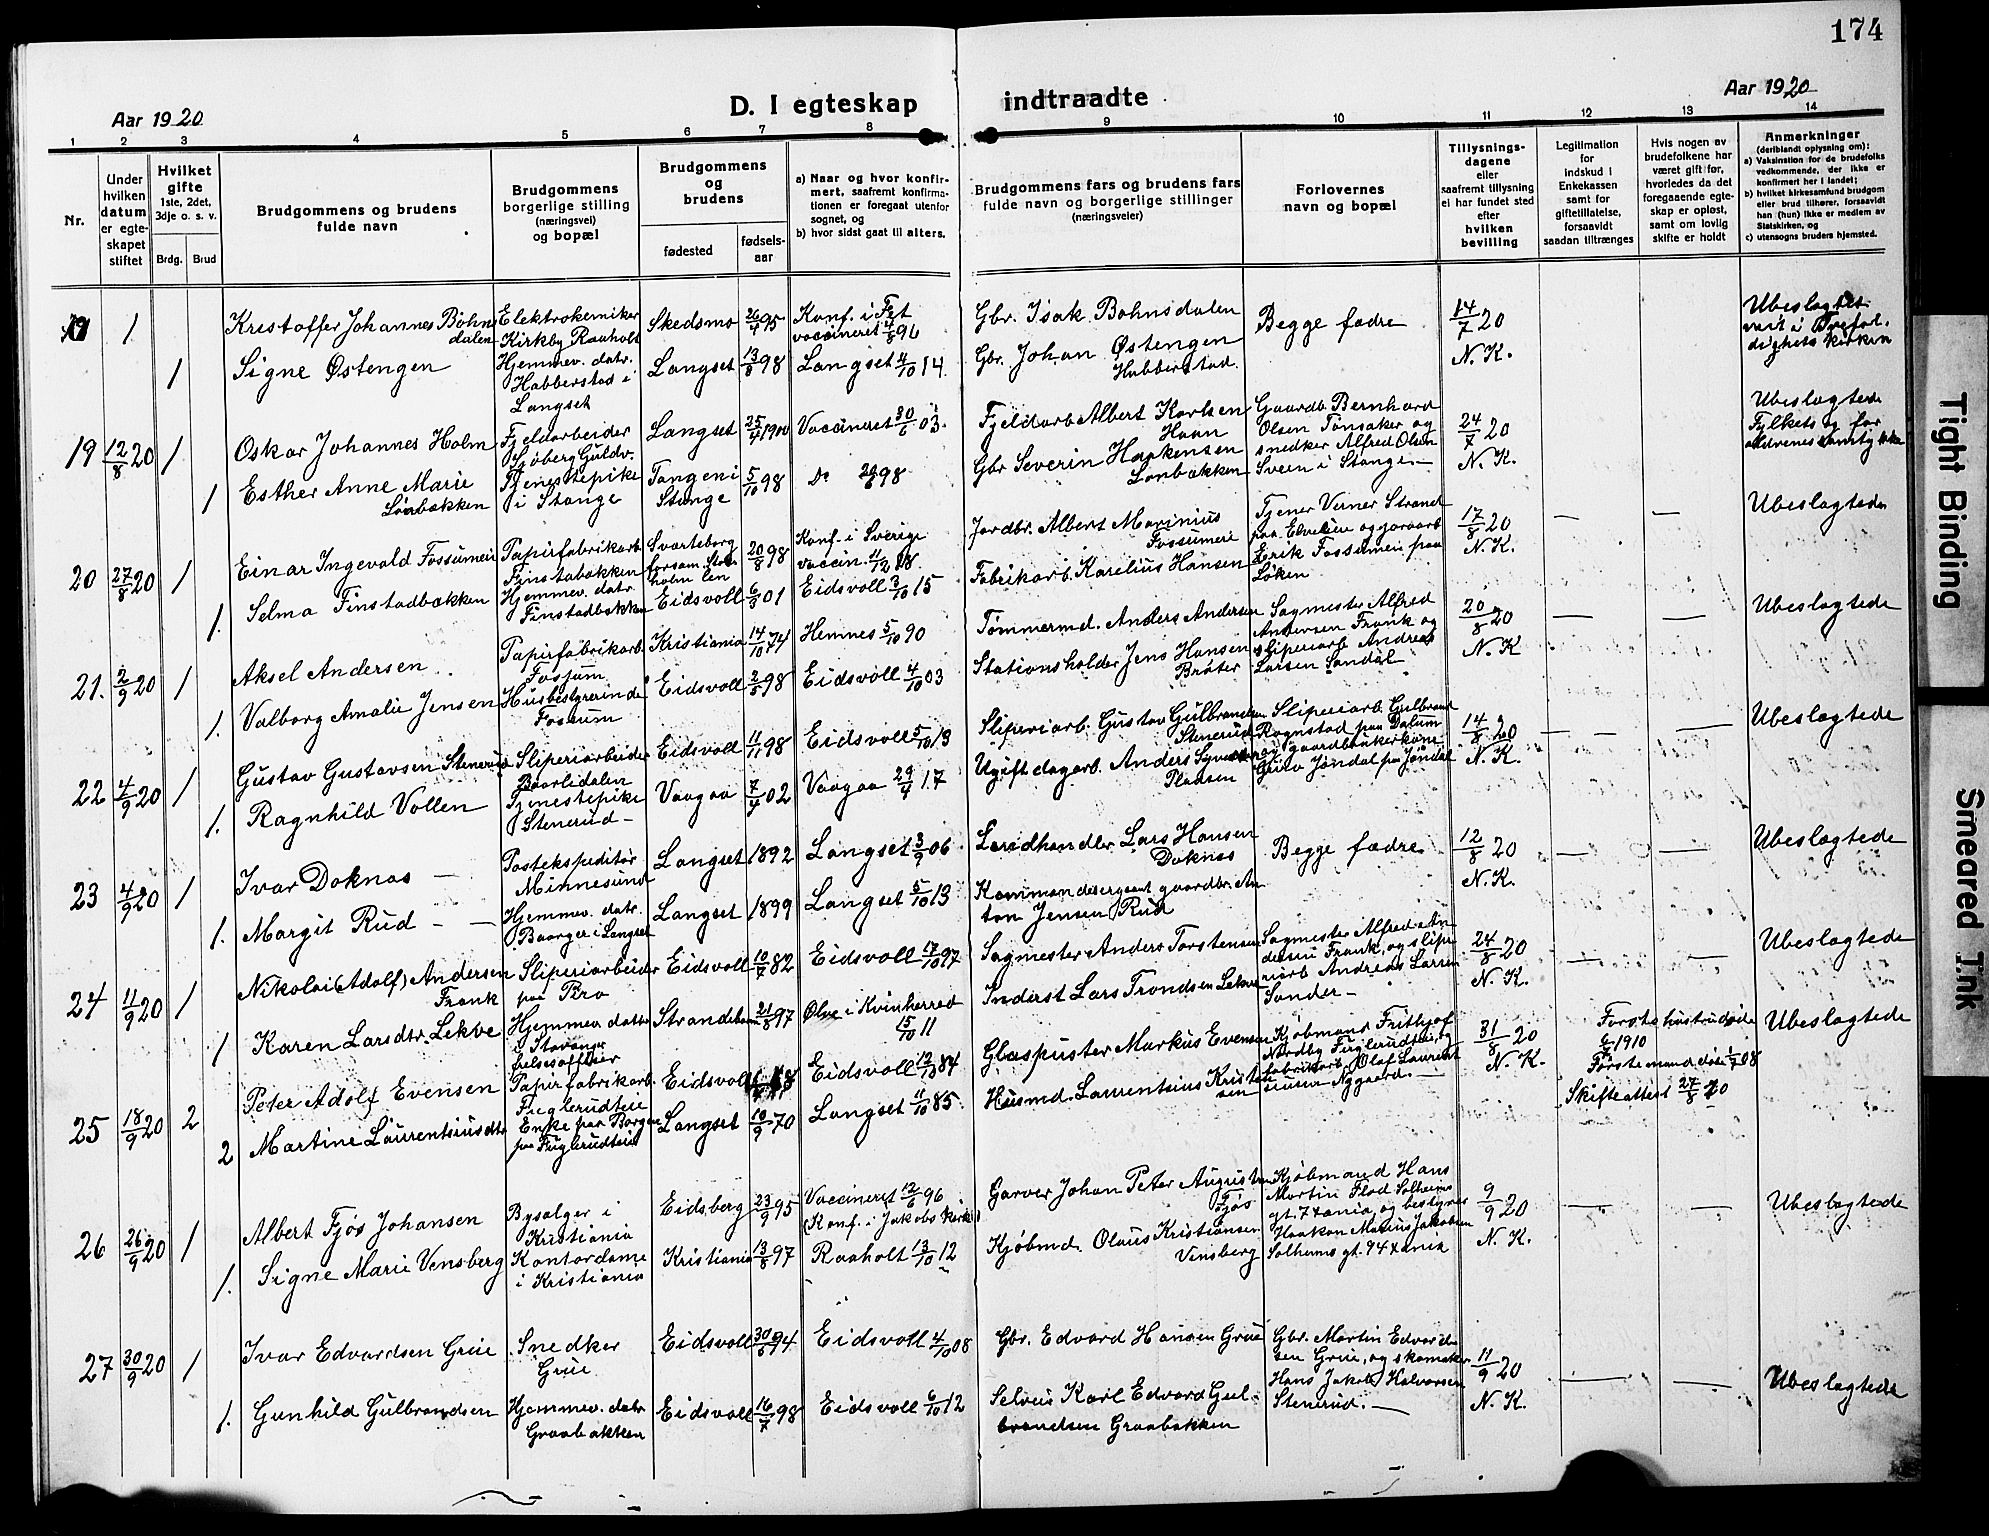 174
Aar 1920
D. I egteskap
indtraadte
Aar 1920
1 2 3 4 5 6 7 8 9 10 11 12 13 14
Nr.
Under hvilken datum er egteskapet stiftet
Hvilket gifte 1ste, 2det, 3dje o. s. v.
Brdg. Brud
Brudgommens og brudens fulde navn
Brudgommens borgerlige stilling (næringsvei) og bopæl
Brudgommens og brudens
fødested
fødselsaar
a) Naar og hvor konfirmert, saafremt konfirmationen er foregaat utenfor sognet, og
b) hvor sidst gaat til alters.
Brudgommens fars og brudens fars fulde navn og borgerlige stillinger (næringsveier)
Forlovernes navn og bopæl
Tillysningsdagene eller saafremt tillysning ei har fundet sted efter hvilken bevilling
Legitimation for indskud i Enkekassen samt for giftetillatelse, forsaavidt saadan tiltrænges
Hvis nogen av brudefolkene har været gift før, hvorledes da det foregaaende egteskap er opløst, samt om lovlig skifte er holdt
Anmerkninger (deriblandt oplysning om):
a) Vaksination for de brudefolks vedkommende, der ikke er konfirmert her i landet;
b) hvilket kirkesamfund brudgom eller brud tilhører, forsaavidt han (hun) ikke er medlem av Statskirken, og
c) utensogns bruders hjemsted.
1 Kristoffer Johannes Böhnsdalen Elektrokemiker Kirkby Raaholt Skedsmo 26/4 95 Konf. i vaccineret Gbr. Isak Bohnsdalen Begge fædre 14/7 20 N. K. Ubeslegtet viet i Trefoldighets kirken
1 Signe Østengen Hjemmev. datr. Habberstad i Langset Langset 13/8 98 Langset 4/10 14. Gbr. Johan Østengen Habberstad.
19 12/8 20 1 Oskar Johannes Holm Fjeldarbeider Sjøberg Guldv. Langset 25/4 1900 Vaccineret 30/6 03. Fjeldarb. Albert Karlsen Haan Gaardb. Bernhard Olsen Tönsaker og snedker Alfred Olsen Sveen i Stange. 24/7 20 N. K. Ubeslegtede
1 Esther Anne Marie Lönbakken Tjenestepike i Stange Tangen i Stange 5/10 98 Do 98 Gbr Severin Haakensen Lonbakken
20 27/8 20 1 Einar Ingevald Fossumeie Papirfabrikarb. Finstabakken 20/8 98 Konf. i Sverige vaccin. Jordbr. Albert Marinius Fossumeie Tjener Verner Strand Erik Fossumeie paa Löken 17/8 20 N. K. — — Ubeslegtede
1. Selma Finstadbakken Hjemmev. datr. Finstadbakken Eidsvoll 6/8 01 Eidsvoll 3/10 15 Fabrikarb. Karelius Hansen
21. 2/9 20 1 Aksel Andersen Papirfabrikarb Fossum Kristiania 14/10 74 Hemnes 5/10 90 Tömmermd. Anders Andersen Sagmester Alfred Andersen Frank og sliperiarb Andreas Larsen Sandal 20/8 20 N. K — — Ubeslegtede
1. Valborg Amalie Jensen Husbestyrerinde Fossum Eidsvoll 2/5 98 Eidsvoll 4/10 03 Stationsholder Jens Hansen Bröter
22 4/9 20 1 Gustav Gustavsen Stenerud Sliperiarbeider Baarlidalen Eidsvoll 11/11 98 Eidsvoll 5/10 13 Sliperiarb. Gustav Gulbrandsen Stenerud Sliperiarb. Gulbrand Rognstad paa Dalum og gaardbrukerkone Guro Jöndal paa Jöndal 14/8 20 N. K. — — — Ubeslegtede
1. Ragnhild Vollen Tjenestepike Stenerud — Vaagaa 7/4 02 Vaagaa 29/4 17 Ugift dagarb. Anders Pladsen
23 4/9 20 1 Ivar Doknos — Postekspeditör Minnesund Langset 1892 Langset 3/9 06 Landhandler Lars Hansen Doknos Begge fædre 12/8 20 N. K. — — Ubeslegtede
1. Margit Rud — — Hjemmev. datr. Baarger i Langset Langset 1899 Langset 5/10 13 Kommandersergeant gaardbr. Anton Jensen Rud
24 11/9 20 1 Nikolai (Adolf) Andersen Frank Sliperiarbeider paa Bro Eidsvoll 10/7 82 Eidsvoll 17/10 97 Sagmester Anders Torstensen Sagmester Alfred Andersen Frank, og sliperiarb Andreas Larsen Sander — 24/8 20 N. K. — — Ubeslegtede
1 Karen Larsdtr. Lekve Hjemmev. datter i Stavanger frelsesoffiser 21/8 97 Ölve i Kvinherred 15/10 11 Inderst Lars Trondsen Lekve
25 18/9 20 2 Peter Adolf Evensen Papirfabrikarb. Fuglerudteie Eidsvoll Eidsvoll 12/10 84 Glaspuster Markus Evensen Kjöbmand Frithjof Nordby Fuglerudteie, og fabrikarb. Olaf Laurentsiussen Nygaard. — 31/8 20 N. K. Forste hustru döde 1910 Förste mand döde 08 Skifteattest 27/8 20 Ubeslegtede
2 Martine Laurentsiusdtr. Enke paa Fuglerudteie Langset 10/9 70 Langset 11/10 85. Husmd. Laurentsius Kristensen
26 26/9 20 1 Albert Fjös Johansen Bysælger i Kristiania Eidsberg 23/9 95 Vaccineret 12/6 96 (Konf. i Jakobs kirke) Garver Johan Peter Augustsen Fjös Kjöbmand Hans Martin Flod Solheimsgt. 7 Xania, og bestyrer Haakon Marius Jakobsen Solheims gt. 9 4 Xania 9/9 20 N. K. — — Ubeslegtede
1. Signe Marie Vensberg Kontordame i Kristiania Kristiania 13/8 97 Raaholt 13/10 12 Kjöbmd. Olaus Kristiansen Vensberg
27 30/9 20 1 Ivar Edvardsen Grue Snedker Grue Eidsvoll 30/6 94 Eidsvoll 4/10 08 Gbr. Edvard Hansen Grue Gbr. Martin Edvardsen Grue, og skomaker Hans Jakob Halvorsen Stenerud. — 11/9 20 N. K. — — Ubeslegtede
1. Gunhild Gulbrandsen Hjemmev. datr Graabakken Eidsvoll 16/7 98 Eidsvoll 6/10 12 Selveier Karl Edvard Gulbrandsen Graabakken
Tight Binding
Smeared Ink